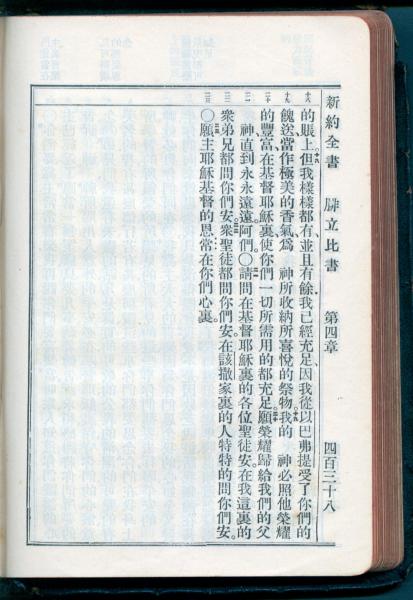 新約全書 腓立比書 第四章 四百三十八
十八 十九 二十 二一 二二 二三
的賬上但我樣樣都有並且有餘我已經充足因我從以巴弗提受了你們的
餽送當作極美的香氣為 神所收納所喜悅的祭物我的 神必照他榮耀
的豐富在基督耶穌裏使你們一切所需用的都充足願榮耀歸給我們的父
神直到永永遠遠阿們〇請問在基督耶穌裏的各位聖徒安在我這裏的
衆弟兄都問你們安衆聖徒都問你們安在該撒家裏的人特特的問你們安
〇願主耶穌基督的恩常在你們心裏